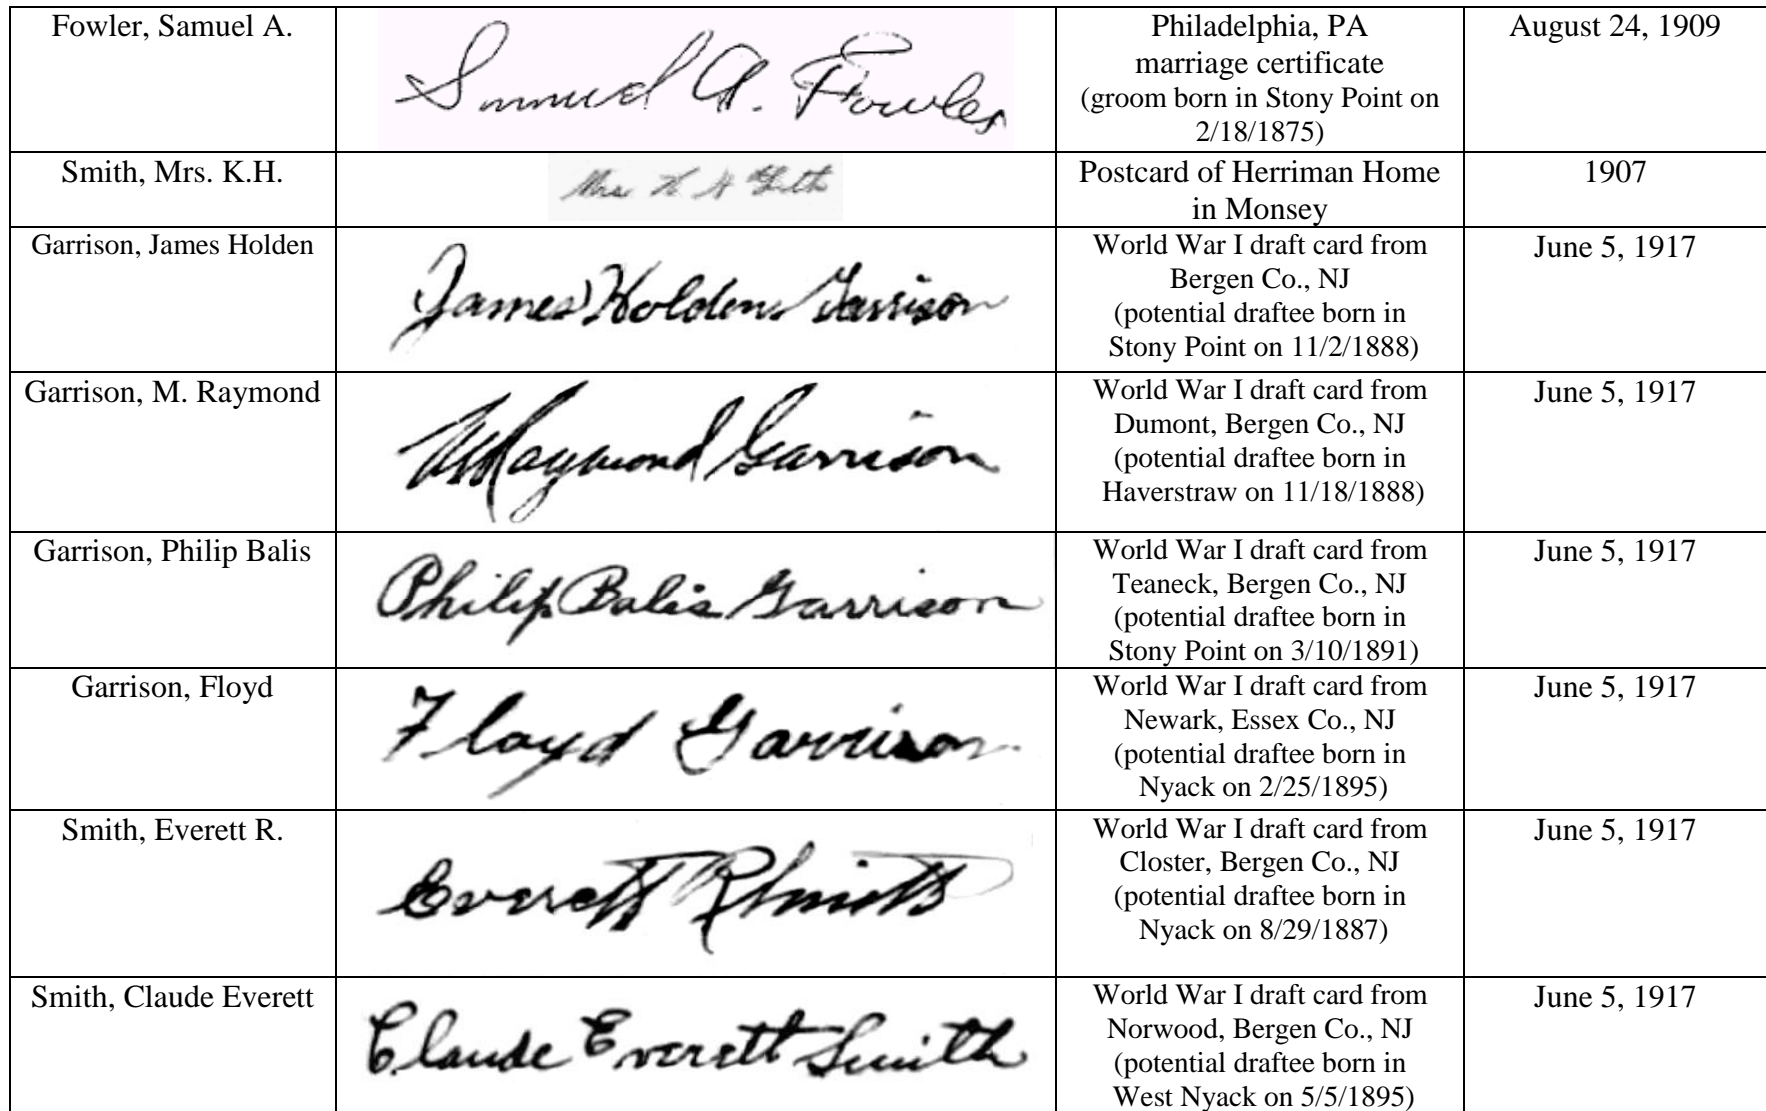 Fowler, Samuel A.
Samuel A. Fowler
Philadelphia, PA
marriage certificate
(groom born in Stony Point on
2/18/1875)
August 24, 1909
Smith, Mrs. K.H.
Mrs K H Smith
Postcard of Herriman Home
in Monsey
1907
Garrison, James Holden
James Holden Garrison
World War I draft card from
Bergen Co., NJ
(potential draftee born in
Stony Point on 11/2/1888)
June 5, 1917
Garrison, M. Raymond
M Raymond Garrison
World War I draft card from
Dumont, Bergen Co., NJ
(potential draftee born in
Haverstraw on 11/18/1888)
June 5, 1917
Garrison, Philip Balis
Philip Balis Garrison
World War I draft card from
Teaneck, Bergen Co., NJ
(potential draftee born in
Stony Point on 3/10/1891)
June 5, 1917
Garrison, Floyd
Floyd Garrison
World War I draft card from
Newark, Essex Co., NJ
(potential draftee born in
Nyack on 2/25/1895)
June 5, 1917
Smith, Everett R.
Everett R Smith
World War I draft card from
Closter, Bergen Co., NJ
(potential draftee born in
Nyack on 8/29/1887)
June 5, 1917
Smith, Claude Everett
Claude Everett Smith
World War I draft card from
Norwood, Bergen Co., NJ
(potential draftee born in
West Nyack on 5/5/1895)
June 5, 1917